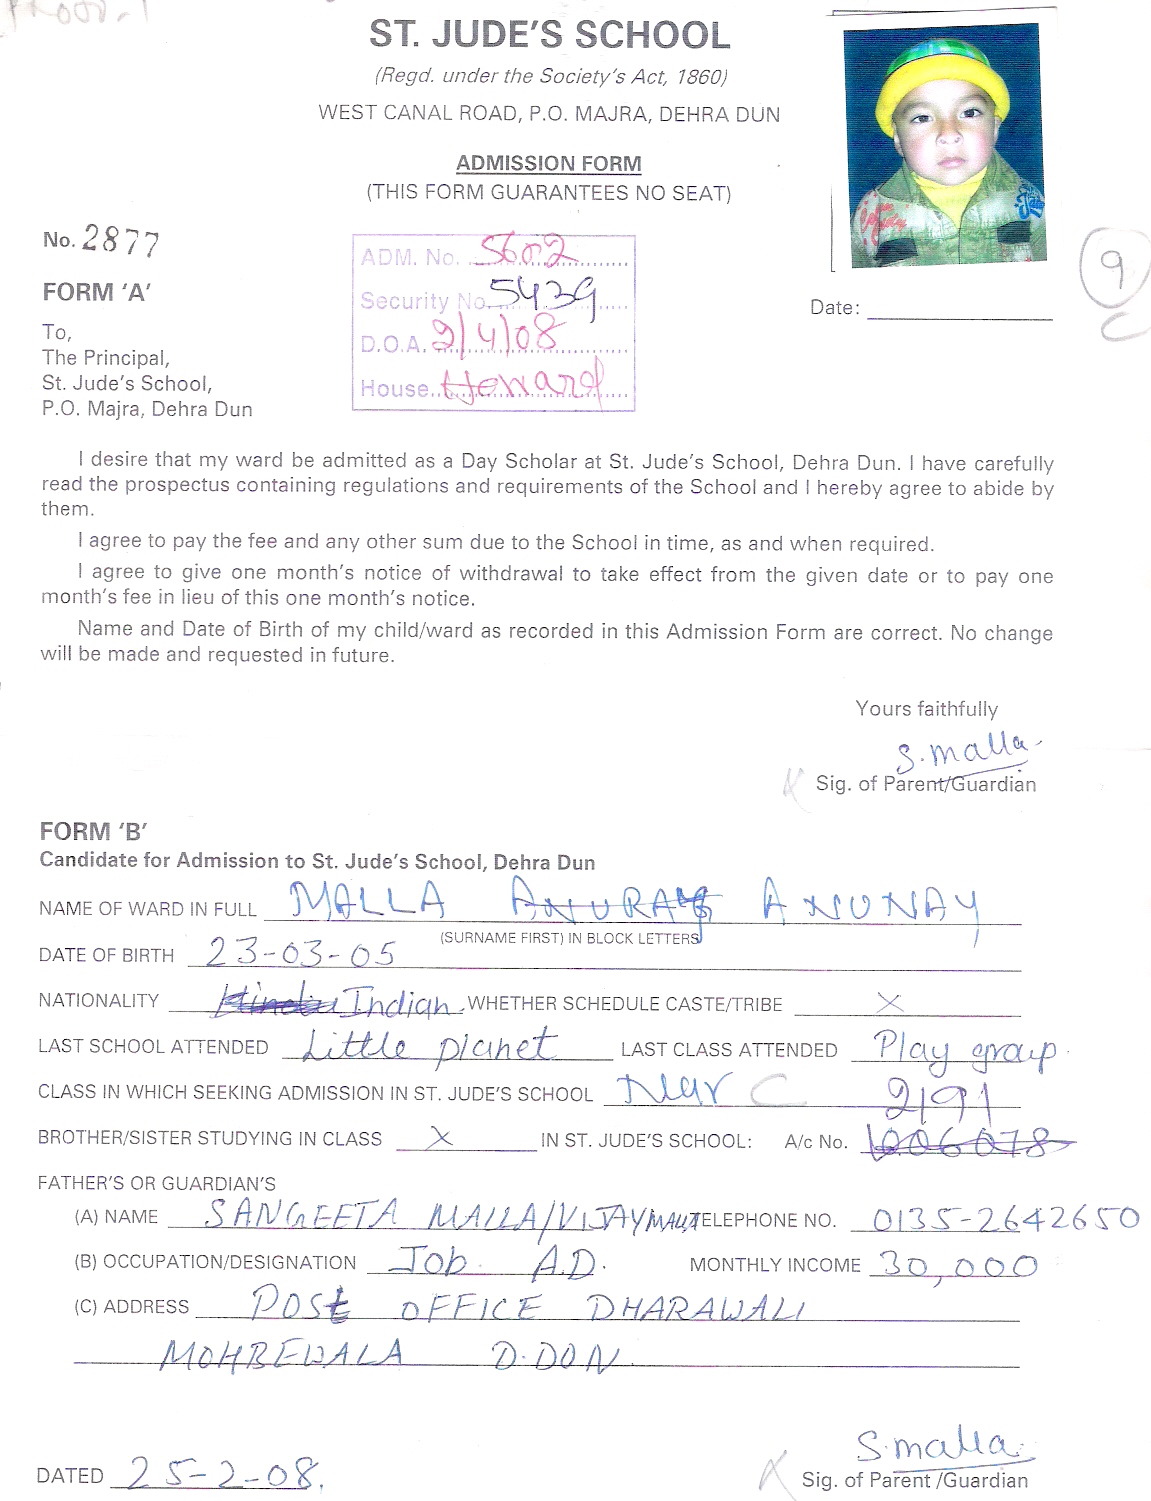 PROOF-1
ST. JUDE'S SCHOOL
(Regd. under the Society's Act, 1860)
WEST CANAL ROAD, P.O. MAJRA, DEHRA DUN
ADMISSION FORM
(THIS FORM GUARANTEES NO SEAT)
No. 2877
ADM. No. 5602
Security No. 5439
D.O.A. 2/4/08
House Howard
9
C
Date:
FORM 'A'
To,
The Principal,
St. Jude's School,
P.O. Majra, Dehra Dun
I desire that my ward be admitted as a Day Scholar at St. Jude's School, Dehra Dun. I have carefully
read the prospectus containing regulations and requirements of the School and I hereby agree to abide by
them.
I agree to pay the fee and any other sum due to the School in time, as and when required.
I agree to give one month's notice of withdrawal to take effect from the given date or to pay one
month's fee in lieu of this one month's notice.
Name and Date of Birth of my child/ward as recorded in this Admission Form are correct. No change
will be made and requested in future.
Yours faithfully
S. Malla
Sig. of Parent/Guardian
FORM 'B'
Candidate for Admission to St. Jude's School, Dehra Dun
NAME OF WARD IN FULL MALLA ANURAG ANUNAY
(SURNAME FIRST) IN BLOCK LETTERS
DATE OF BIRTH 23-03-05
NATIONALITY Hindu Indian WHETHER SCHEDULE CASTE/TRIBE X
LAST SCHOOL ATTENDED Little planet LAST CLASS ATTENDED Play group
CLASS IN WHICH SEEKING ADMISSION IN ST. JUDE'S SCHOOL Nur C 2191
BROTHER/SISTER STUDYING IN CLASS X IN ST. JUDE'S SCHOOL: A/c No. 1006078
FATHER'S OR GUARDIAN'S
(A) NAME SANGEETA MALLA/VIJAY MALLA TELEPHONE NO. 0135-2642650
(B) OCCUPATION/DESIGNATION Job. A.D. MONTHLY INCOME 30,000
(C) ADDRESS POSt OFFICE DHARAWALI
MOHBEWALA D.DON
DATED 25-2-08.
S. Malla
Sig. of Parent /Guardian